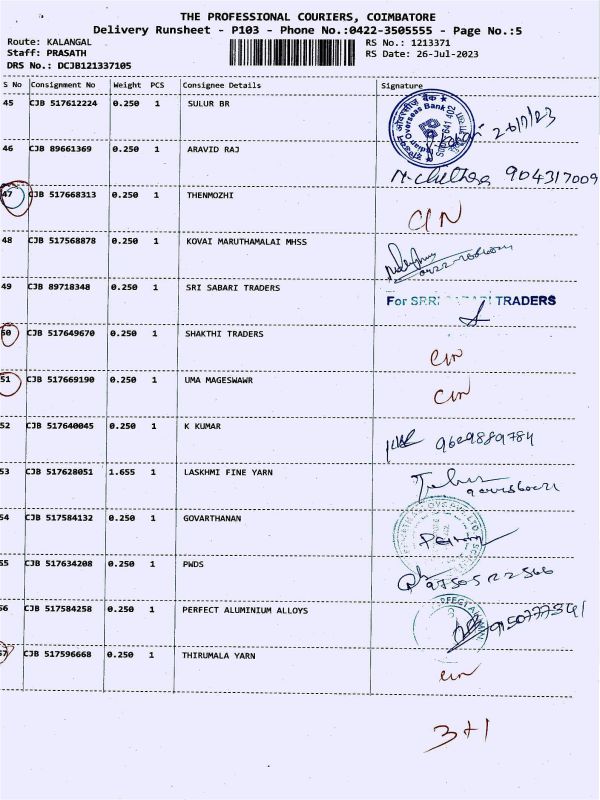 THE PROFESSIONAL COURIERS, COIMBATORE
Delivery Runsheet - P103 - Phone No.:0422-3505555 - Page No.:5
Route: KALANGAL RS No.: 1213371
Staff: PRASATH RS Date: 26-Jul-2023
DRS No.: DCJB121337105
S No Consignment No Weight PCS Consignee Details Signature
45 CJB 517612224 0.250 1 SULUR BR
Overseas Bank
26/7/23
46 CJB 89661369 0.250 1 ARAVID RAJ
904317009
47 CJB 517668313 0.250 1 THENMOZHI
CIN
48 CJB 517568878 0.250 1 KOVAI MARUTHAMALAI MHSS
49 CJB 89718348 0.250 1 SRI SABARI TRADERS
For TRADERS
50 CJB 517649670 0.250 1 SHAKTHI TRADERS
CIN
51 CJB 517669190 0.250 1 UMA MAGESWAWR
CIN
52 CJB 517640045 0.250 1 K KUMAR
9629889784
53 CJB 517628051 1.655 1 LASKHMI FINE YARN
54 CJB 517584132 0.250 1 GOVARTHANAN
55 CJB 517634208 0.250 1 PWDS
56 CJB 517584258 0.250 1 PERFECT ALUMINIUM ALLOYS
57 CJB 517596668 0.250 1 THIRUMALA YARN
CIN
3+1